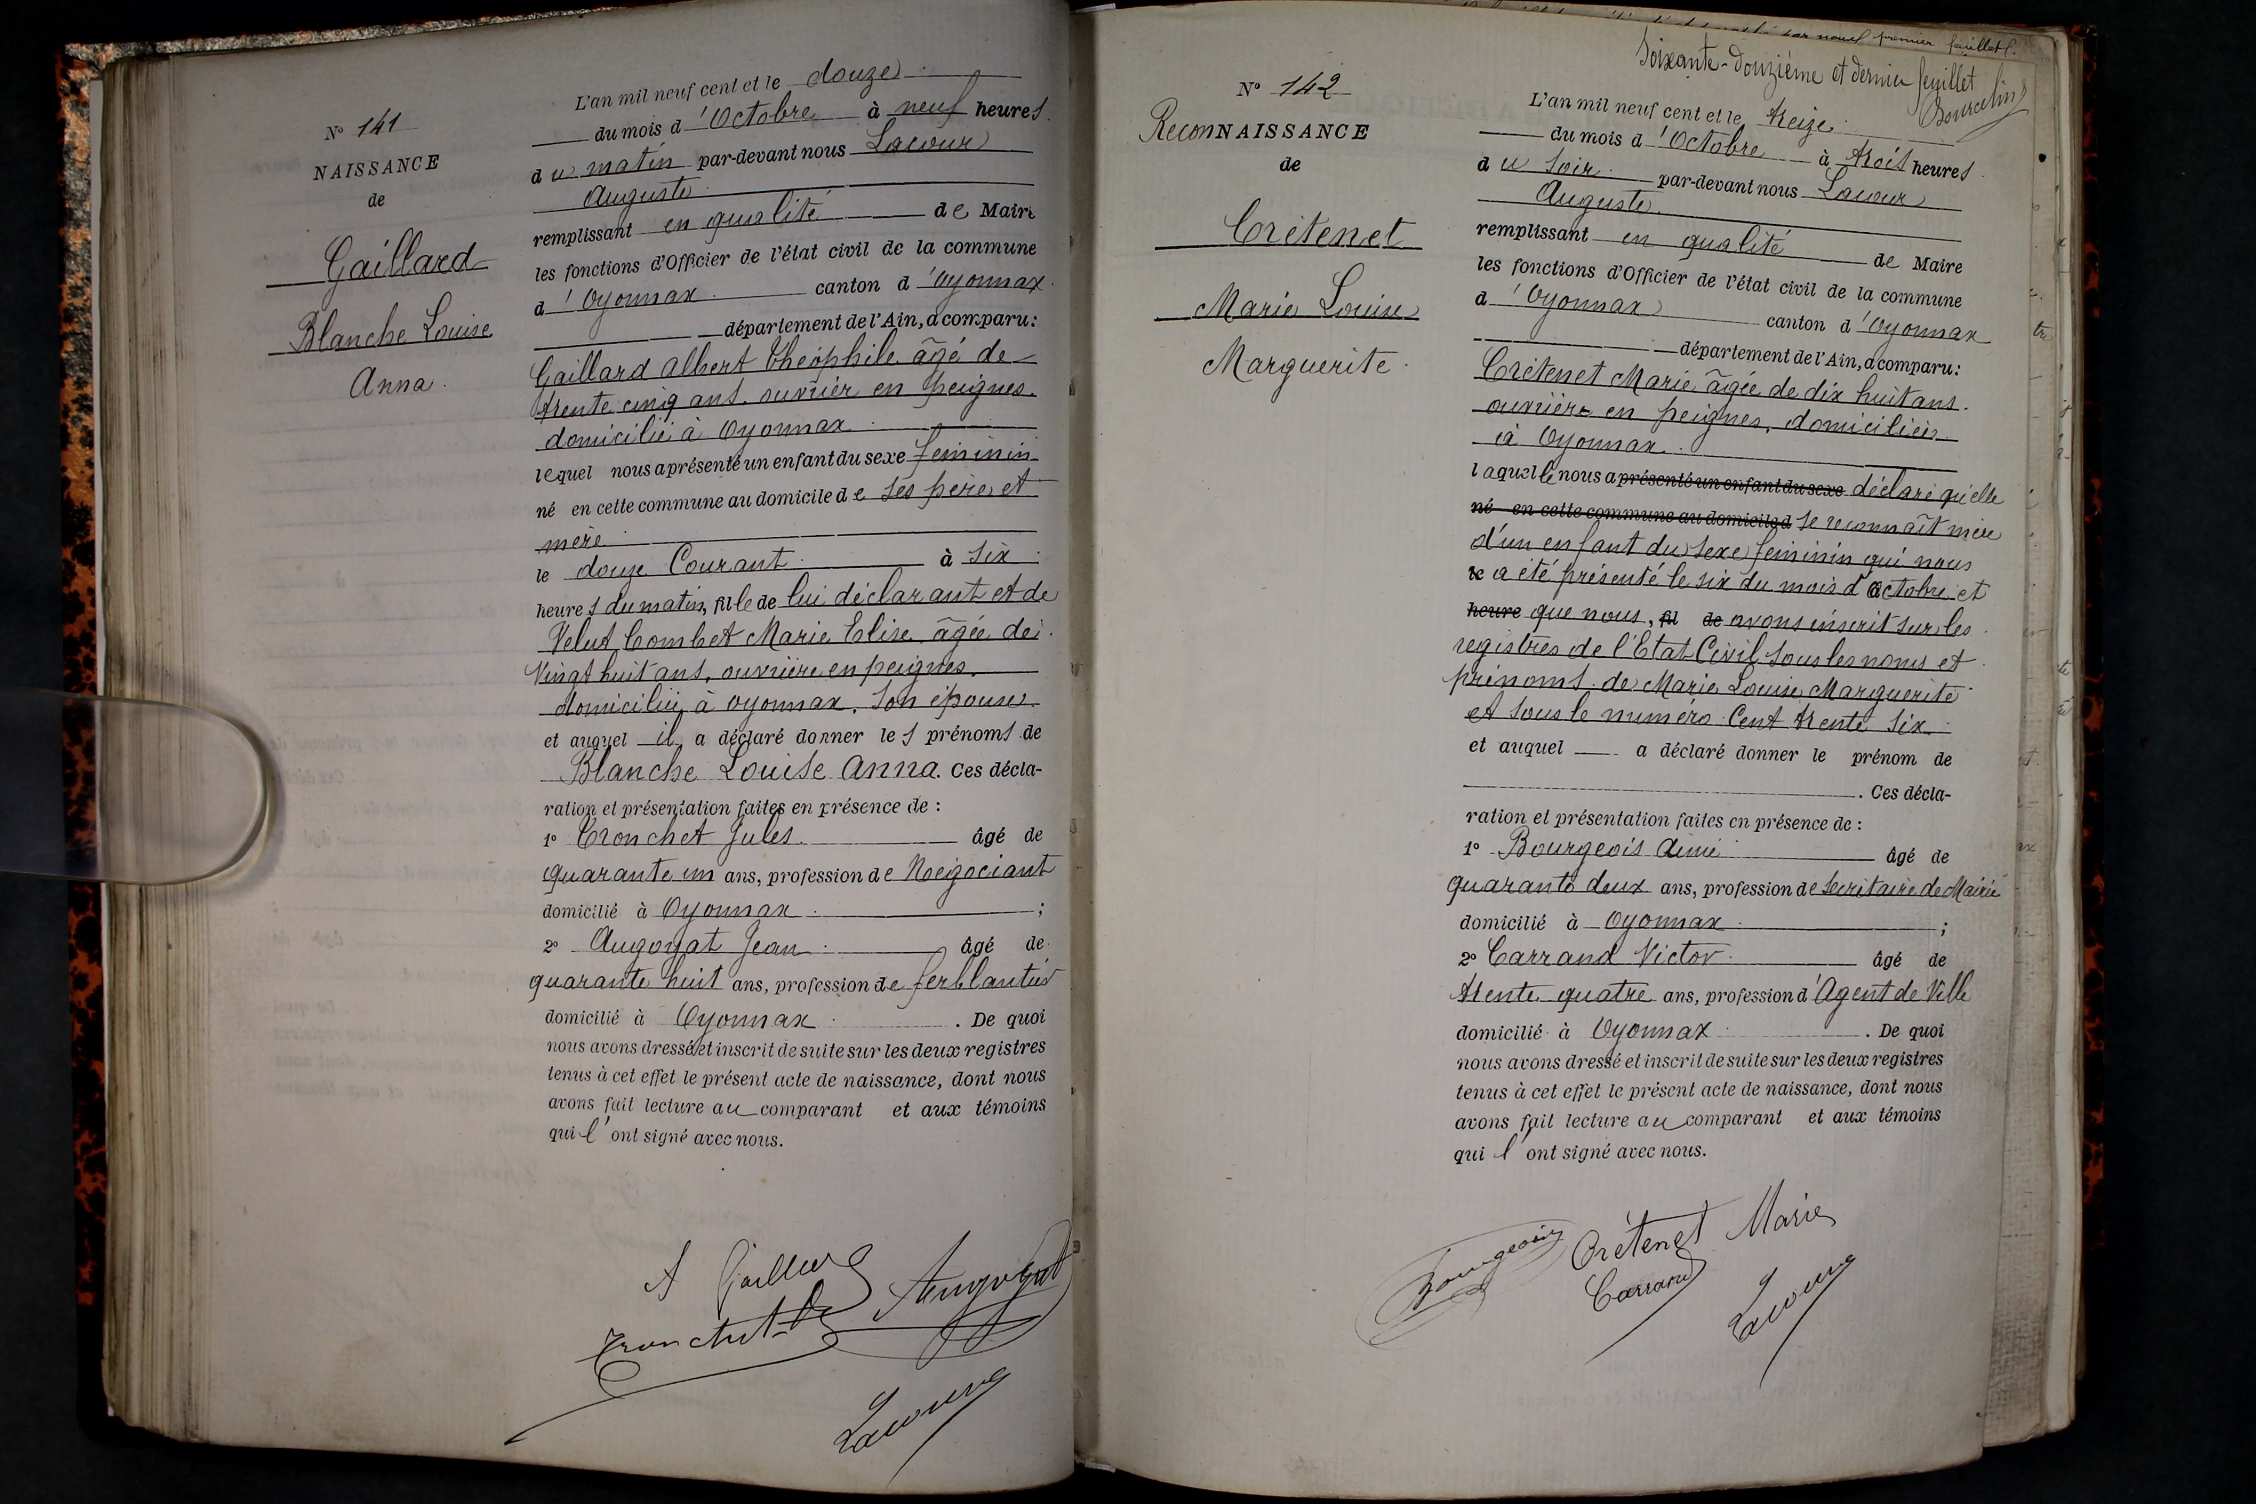 N° 141
NAISSANCE
de
Gaillard
Blanche Louise
Anna
L'an mil neuf cent et le douze
du mois d'Octobre à neuf heures
du matin par-devant nous Lacour
Auguste
remplissant en qualité de Maire
les fonctions d'Officier de l'état civil de la commune
d'Oyonnax canton d'Oyonnax
département de l'Ain, a comparu:
Gaillard Albert Théophile âgé de
trente cinq ans, ouvrier en peignes.
domicilié à Oyonnax
lequel nous a présenté un enfant du sexe feminin
né en cette commune au domicile de ses père et
mère
le douze Courant à six
heures du matin, fille de lui déclarant et de
Velut Combet Marie Elise âgée de
Vingt huit ans, ouvrière en peignes.
domiciliée à Oyonnax. Son épouse.
et auquel il a déclaré donner les prénoms de
Blanche Louise Anna. Ces décla-
ration et présentation faites en présence de :
1° Tronchet Jules âgé de
quarante un ans, profession de Négociant
domicilié à Oyonnax ;
2° Augoyat Jean âgé de
quarante huit ans, profession de ferblantier
domicilié à Oyonnax. De quoi
nous avons dressé et inscrit de suite sur les deux registres
tenus à cet effet le présent acte de naissance, dont nous
avons fait lecture au comparant et aux témoins
qui l'ont signé avec nous.
A Gaillard
Augoyat
Tronchet
Lacour
Soixante-douzième et dernier feuillet
N° 142
ReconNAISSANCE
de
Crétenet
Marie Louise
Marguerite
L'an mil neuf cent et le treize
du mois d'Octobre à trois heures
du soir par-devant nous Lacour
Auguste
remplissant en qualité de Maire
les fonctions d'Officier de l'état civil de la commune
d'Oyonnax canton d'Oyonnax
département de l'Ain, a comparu:
Crétenet Marie âgée de dix huit ans.
ouvrière en peignes, domiciliée
à Oyonnax.
laquelle nous a présenté un enfant du sexe déclaré qu'elle
né en cette commune au domicile d se reconnaît mère
d'un enfant du sexe feminin qui nous
le a été présenté le six du mois d'Octobre et
heure que nous, fil de avons inscrit sur les
registres de l'Etat Civil sous les noms et
prénoms de Marie Louise Marguerite
et sous le numéro Cent trente six
et auquel a déclaré donner le prénom de
. Ces décla-
ration et présentation faites en présence de :
1° Bourgeois Aimé âgé de
quarante deux ans, profession de Secrétaire de Mairie
domicilié à Oyonnax ;
2° Carrand Victor âgé de
trente quatre ans, profession d'Agent de Ville
domicilié à Oyonnax. De quoi
nous avons dressé et inscrit de suite sur les deux registres
tenus à cet effet le présent acte de naissance, dont nous
avons fait lecture au comparant et aux témoins
qui l'ont signé avec nous.
Bourgeois
Crétenet Marie
Carrand
Lacour